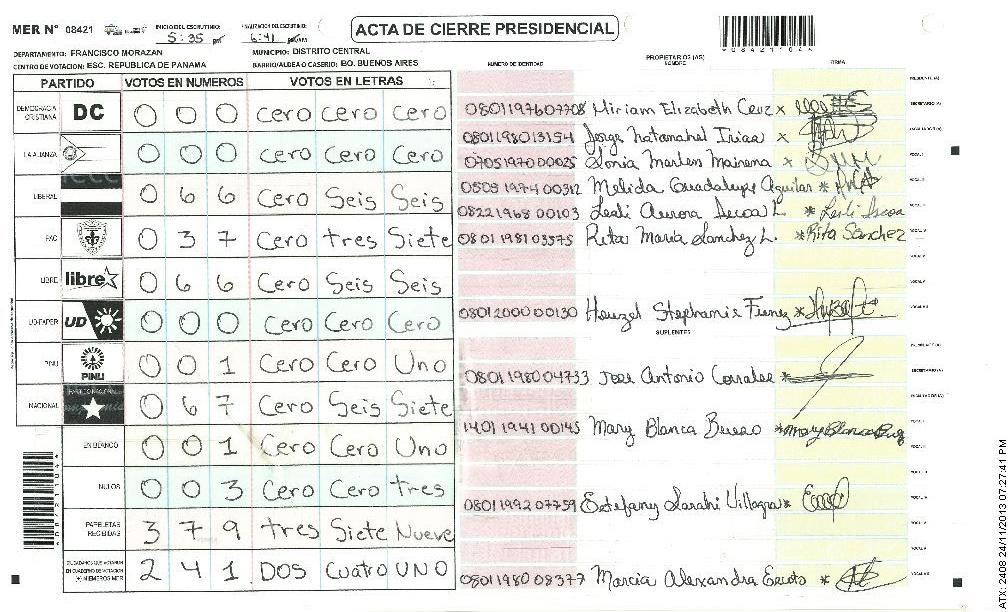 MER N° 08421 INICIO DEL ESCRUTINIO: 5:35 pm FINALIZACION DEL ESCRUTINIO: 6:41 ACTA DE CIERRE PRESIDENCIAL
DEPARTAMENTO: FRANCISCO MORAZAN MUNICIPIO: DISTRITO CENTRAL
CENTRO DE VOTACION: ESC. REPUBLICA DE PANAMA BARRIO/ALDEA O CASERIO: BO. BUENOS AIRES
PARTIDO VOTOS EN NUMEROS VOTOS EN LETRAS
DEMOCRACIA CRISTIANA DC 0 0 0 Cero Cero Cero
LA ALIANZA 0 0 0 Cero Cero Cero
LIBERAL 0 6 6 Cero Seis Seis
PAC 0 3 7 Cero tres Siete
LIBRE libre 0 6 6 Cero Seis Seis
UD-FAPER UD 0 0 0 Cero Cero Cero
PINU PINU 0 0 1 Cero Cero Uno
NACIONAL 0 6 7 Cero Seis Siete
EN BLANCO 0 0 1 Cero Cero Uno
NULOS 0 0 3 Cero Cero tres
PAPELETAS RECIBIDAS 3 7 9 tres Siete Nueve
CIUDADANOS QUE VOTARON EN CUADERNO DE VOTACION (+) MIEMBROS MER 2 4 1 DOS Cuatro UNO
PROPIETARIOS (AS)
NUMERO DE IDENTIDAD NOMBRE FIRMA
0801197607708 Miriam Elizabeth Cruz x
0801198013154 Jorge Natanahel Irias x
0705197000025 Sonia Marlen Mairena x
0505197400312 Melida Guadalupe Aguilar *
0822196800103 Lesli Aurora L. * Lesli
0801198103575 Rita Maria Sanchez L. * Rita Sánchez
0801200000130 Stephanie *
SUPLENTES
0801198004733 Jose Antonio Corrales *
1401194100145 Mary Blanca * Mary Blanca
0801199207759 Estefany Sarahi Villagra *
0801198008377 Marcia Alexandra *
ATX: 2408 24/11/2013 07:27:41 PM